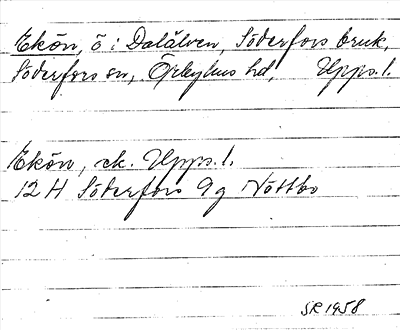 Ekön, ö i Dalälven, Söderfors bruk,
Söderfors sn, Örbyhus hd, Upps. l.
Ekön, ek. Upps. l.
12 H Söderfors 9 g Nöttbo
SR 1958